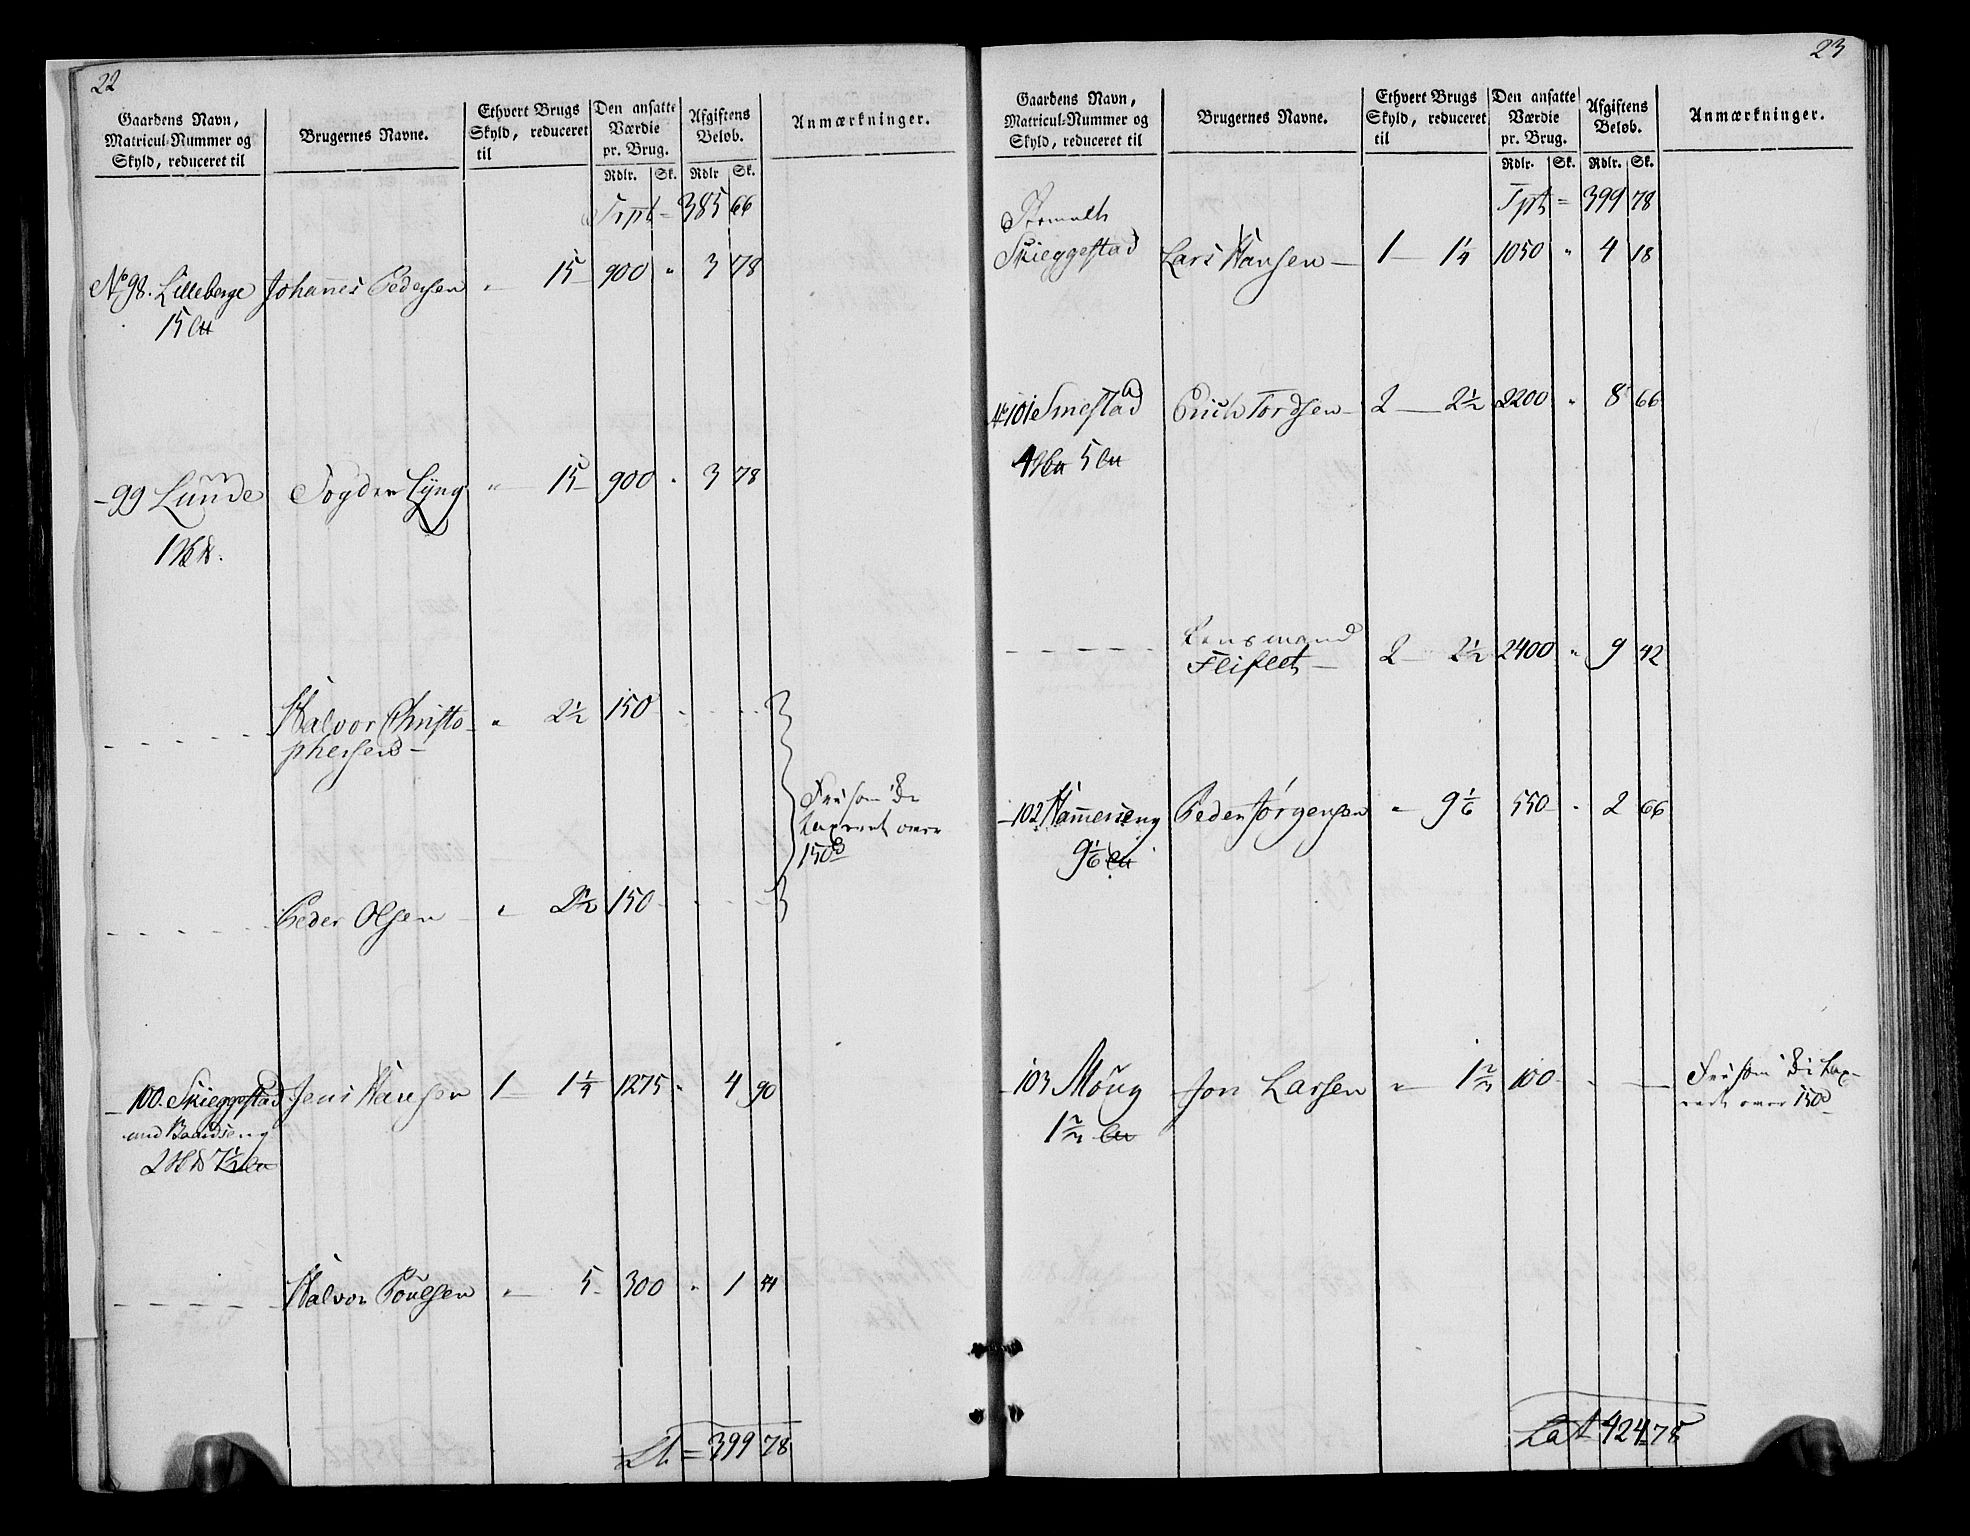 22
Gaardens Navn, Matricul-Nummer og Skyld, reduceret til
Brugernes Navne.
Ethvert Brugs Skyld, reduceret til
Den ansatte Værdie pr. Brug.
Afgiftens Beløb.
Anmærkninger.
Rdlr. Sk. Rdlr Sk.
Trpt = 385 66
No 98. Lilleberge Johannes Pedersen " 15 900 " 3 78
15
- 99 Lunde Togder Lÿng " 15 900 " 3 78
1
Halvor Christo- " 2½ 150
phersen
Fri som ei
taxeret over
150
Peder Olsen " 2½ 150
- 100. Skieggestad Jens Hansen 1 1¼ 1275 " 4 90
2 7½
Halvor Poulsen " 5 300 " 1 24
Lt. = 399 78
23
Gaardens Navn, Matricul-Nummer og Skyld, reduceret til
Brugernes Navne.
Ethvert Brugs Skyld, reduceret til
Den ansatte Værdie pr. Brug.
Afgiftens Beløb.
Anmærkninger.
Rdlr. Sk. Rdlr. Sk.
Tpt = 399 78
Skieggestad Lars Hansen 1 1¼ 1050 " 4 18
No 101 Smestad Erich Tordsen 2 2½ 2200 " 8 66
5
Lensmand
Fliflet 2 2½ 2400 " 9 42
- 102 Hammereng Peder Jørgensen " 9⅙ 550 " 2 66
9⅙
- 103 Moüg Jon Larsen " 1⅔ 100
1⅔
Fri som ei tax-
eret over 150
Lat 424 78